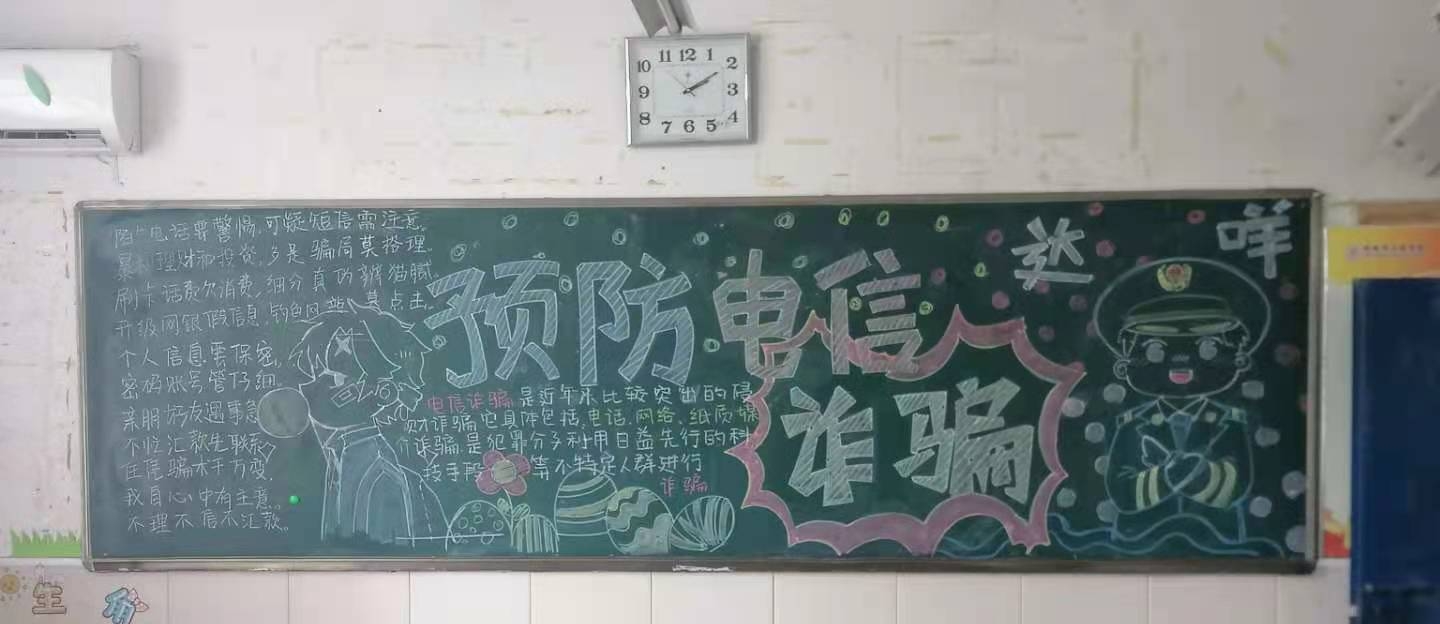 11 12 1
10 2
9 3
8 4
7 6 5
电话要警惕,可疑短信需注意。
暴利理财和投资,多是骗局莫搭理。
刷卡话费欠消费,细分真伪辨猫腻。
升级网银假信息,钓鱼网站莫点击。
个人信息要保密,
密码账号管仔细。
亲朋好友遇事急,
不忙汇款先联系,
任凭骗术千万变,
我自心中有主意。
不理不信不汇款。
预防电信
诈骗
达
咩
电信诈骗是近年来比较突出的侵
财诈骗它具体包括,电话、网络、纸质媒
介诈骗是犯罪分子利用日益先行的科
技手段等不特定人群进行
诈骗
生